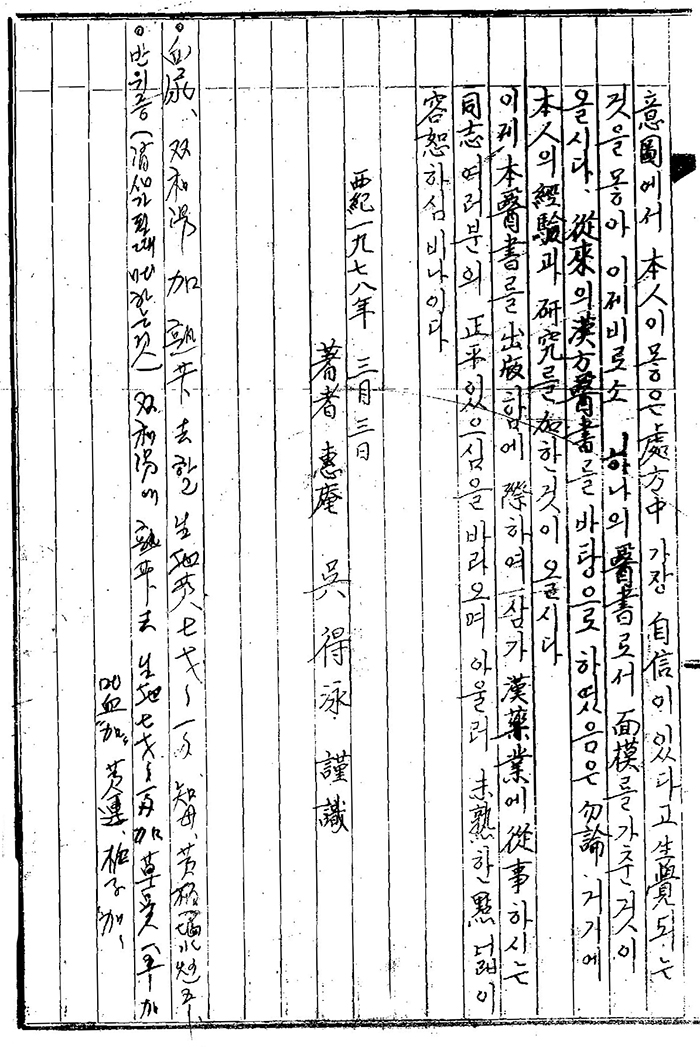 意圖에서 本人이 몽은 處方中 가장 自信이 있다고 生覺되는
것을 몽아 이제비로소 하나의 醫書로서 面模를 가추은것이
올시다. 從來의 漢方醫書를 바탕으로 하였음은 勿論 거기에
本人의 經驗과 硏究를 加한것이 올시다
이제 本醫書를 出版함에 際하여 삼가 漢藥業에 從事하시는
同志여러분의 正平있으심을 바라오며 아울러 未熟한 點 너그러이
容恕하심 비나이다
西紀一九七八年 三月三日
著者 惠庵 吳得泳 謹識
血尿、双和湯 加 去할 生地黃 七 知母、黃柏
반위증 双和湯에 去 生地 七 加 草果 一 加
吐血 加 黃連、梔子 加